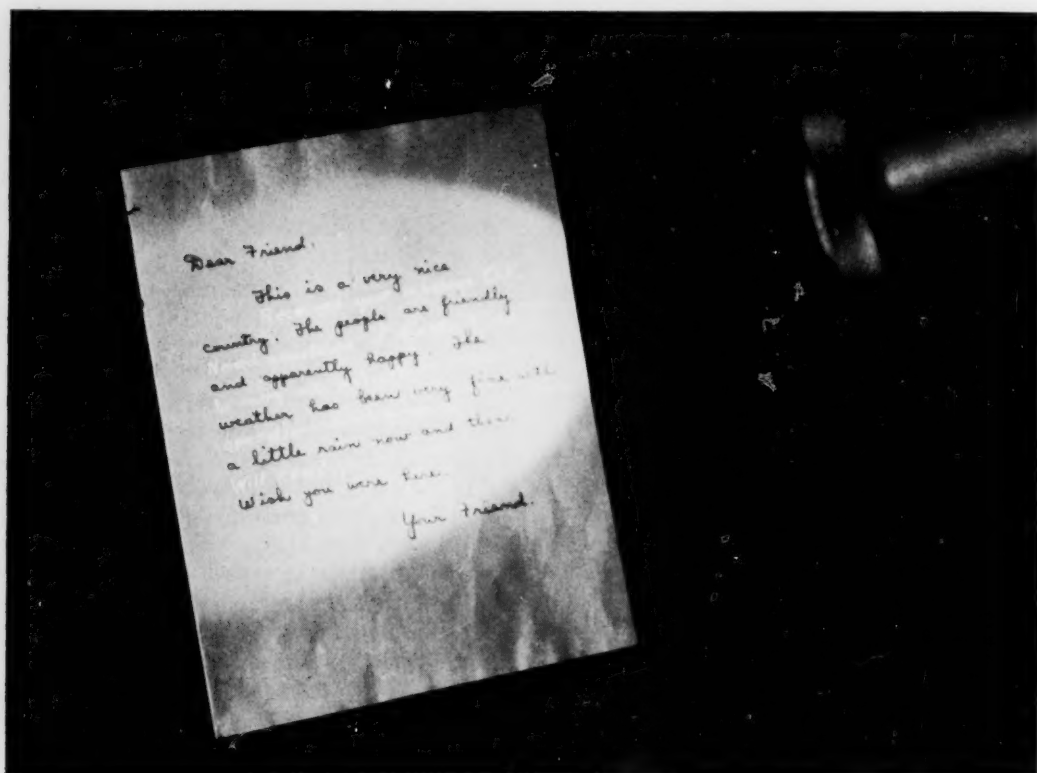 Dear Friend,
This is a very nice
country. The people are friendly
and apparently happy. The
weather has been very fine with
a little rain now and then.
Wish you were here.
Your Friend.